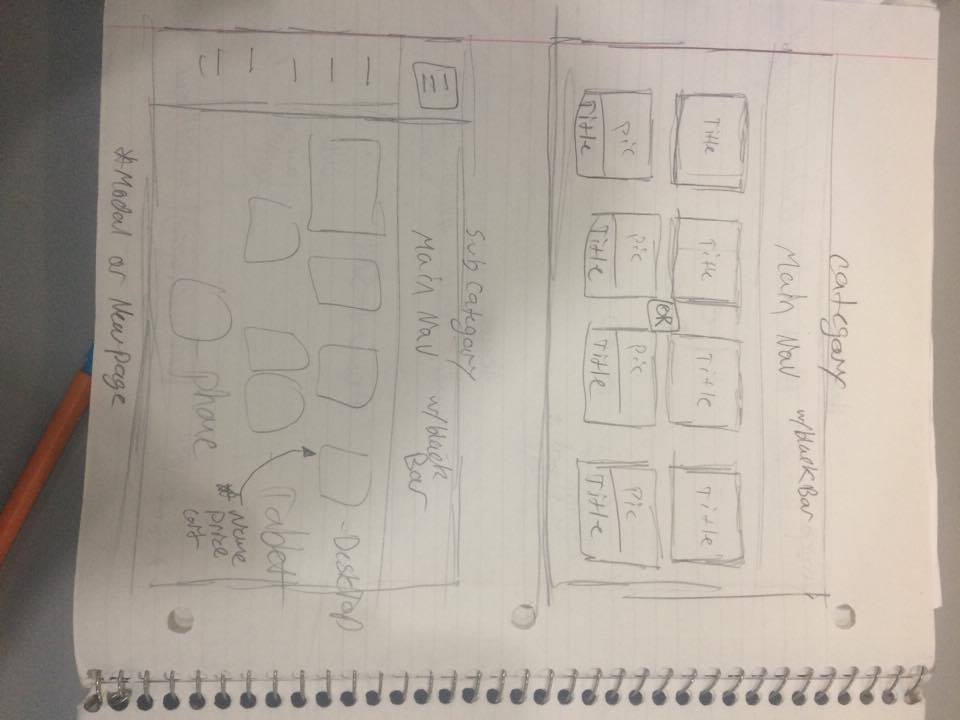 Category
Main Nav w/black Bar
Title Title Title Title
OR
Pic Pic Pic Pic
Title Title Title Title
Sub Category
Main Nav w/black
Bar
- Desktop
Tablet
* Name
price
- phone
* Modal or New page